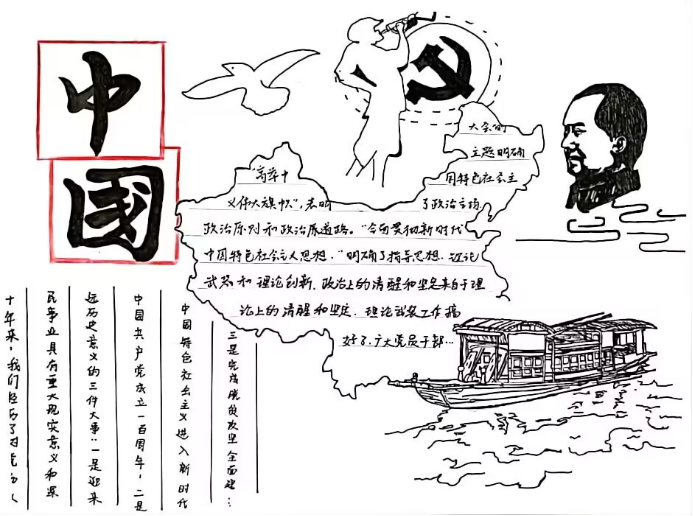 中
国
大会的
主题明确
"高举中 国特色社会主
义伟大旗帜",表明 了政治立场
政治原则和政治原道路。"全面贯彻新时代
中国特色社会主义思想,"明确了指导思想.理论
武器和理论创新.政治上的清醒和坚定来自于理
论上的清醒和坚定.理论武装工作搞
好了.广大党员干部...
十年来,我们经历了对党
民事业具有重大现实意义和深
远历史意义的三件大事:一是迎来
中国共产党成立一百周年,二是
中国特色社会主义进入新时代
三是完成脱贫攻坚全面建...